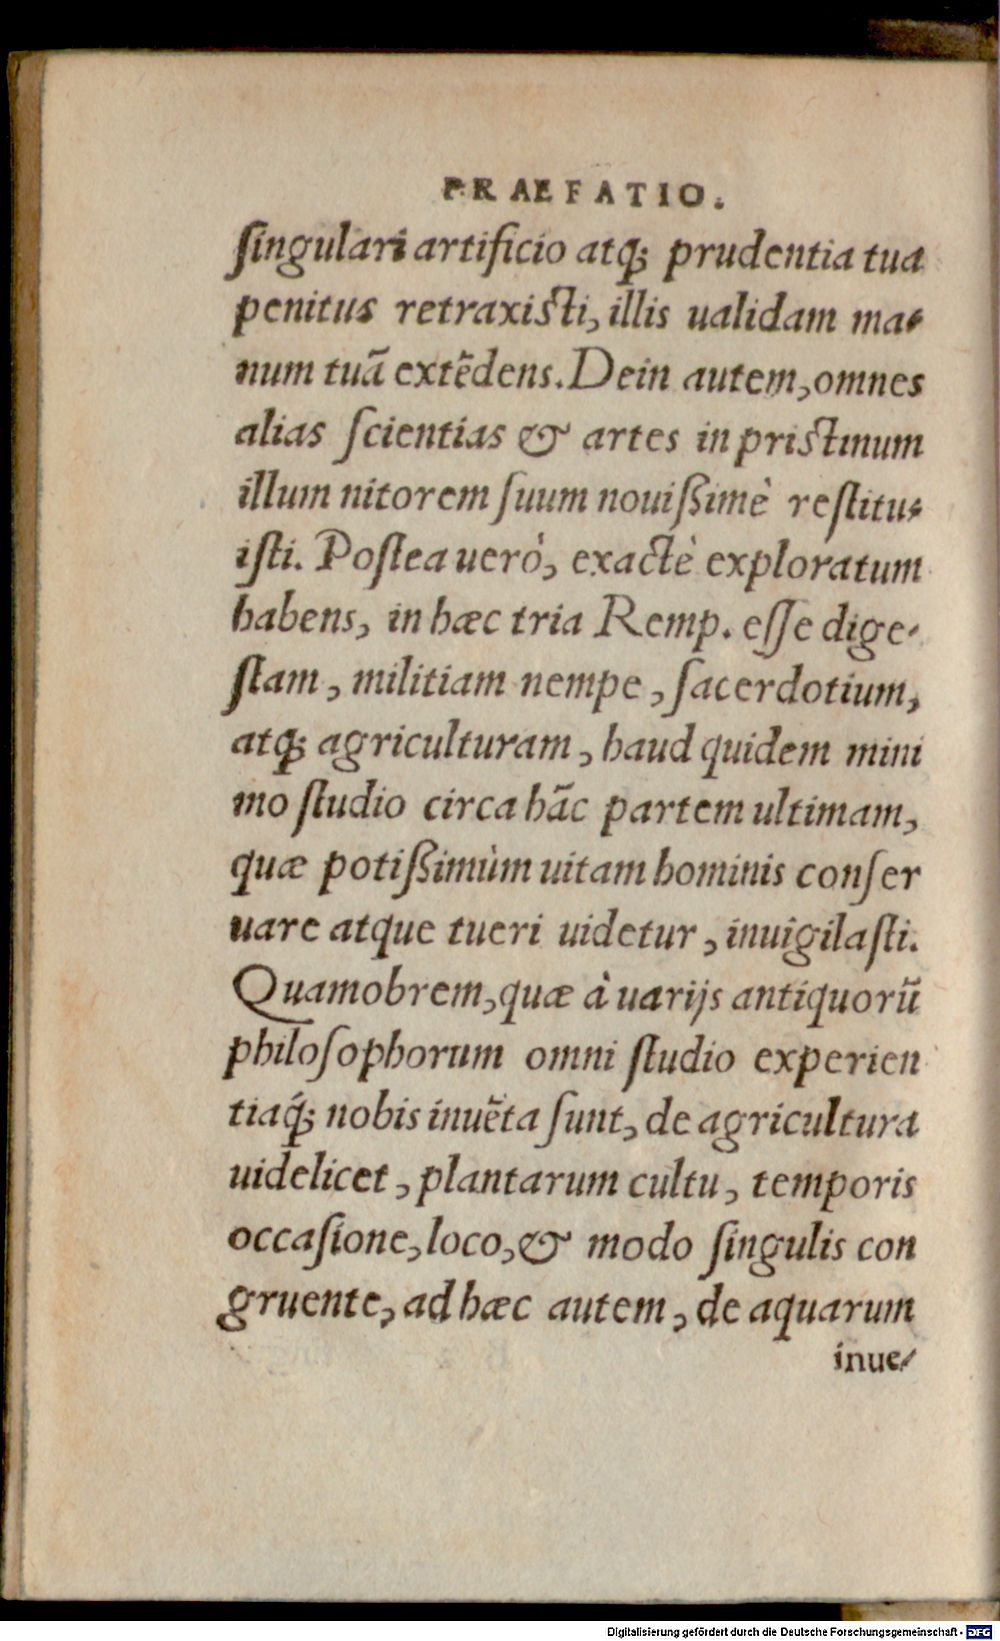 PRAEFATIO.
ſingulari artificio atq; prudentia tua
penitus retraxiſti, illis ualidam ma⸗
num tuã extẽdens. Dein autem, omnes
alias ſcientias & artes in priſtinum
illum nitorem ſuum nouiſsimè reſtitu⸗
iſti. Poſtea uerò, exactè exploratum
habens, in hæc tria Remp. eſſe dige⸗
ſtam, militiam nempe, ſacerdotium,
atq; agriculturam, haud quidem mini
mo ſtudio circa hãc partem ultimam,
quæ potiſsimùm uitam hominis conſer
uare atque tueri uidetur, inuigilaſti.
Quamobrem, quæ à uarijs antiquorũ
philoſophorum omni ſtudio experien
tiaq́; nobis inuẽta ſunt, de agricultura
uidelicet, plantarum cultu, temporis
occaſione, loco, & modo ſingulis con
gruente, ad hæc autem, de aquarum
inue⸗
Digitalisierung gefördert durch die Deutsche Forschungsgemeinschaft - DFG